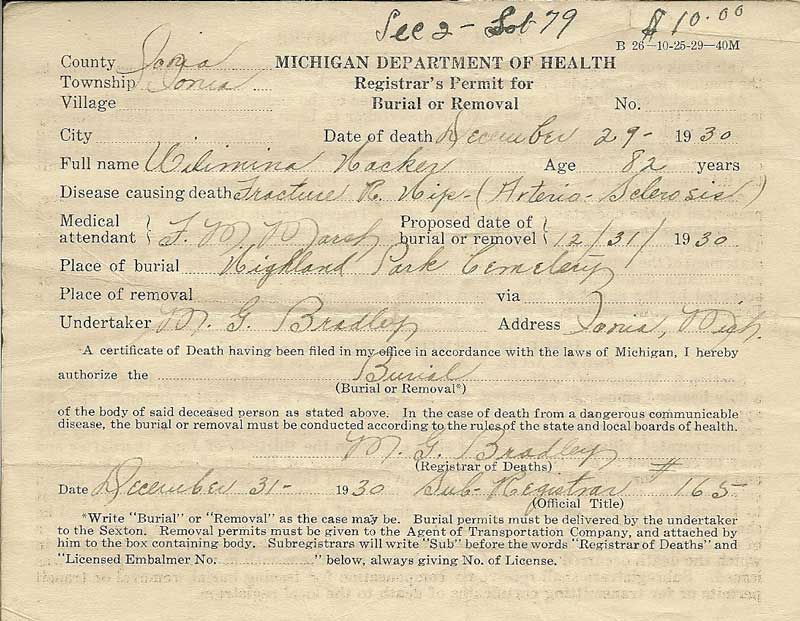 Sec 2 - Lot 79 $10.00
B 26—10-25-29—40M
County Ionia MICHIGAN DEPARTMENT OF HEALTH
Township Ionia Registrar's Permit for
Village Burial or Removal No.
City Date of death December 29- 1930
Full name Wilimina Hacker Age 82 years
Disease causing death Fracture R. Hip - (Arterio-Sclerosis)
Medical attendant F. M. Marsh Proposed date of burial or removel 12/31/ 1930
Place of burial Highland Park Cemetery
Place of removal via
Undertaker M. G. Bradley Address Ionia, Mich.
A certificate of Death having been filed in my office in accordance with the laws of Michigan, I hereby
authorize the Burial
(Burial or Removal*)
of the body of said deceased person as stated above. In the case of death from a dangerous communicable
disease, the burial or removal must be conducted according to the rules of the state and local boards of health.
M. G. Bradley
(Registrar of Deaths)
Date December 31- 1930 Sub-Registrar # 165
(Official Title)
*Write "Burial" or "Removal" as the case may be. Burial permits must be delivered by the undertaker
to the Sexton. Removal permits must be given to the Agent of Transportation Company, and attached by
him to the box containing body. Subregistrars will write "Sub" before the words "Registrar of Deaths" and
"Licensed Embalmer No. " below, always giving No. of License.